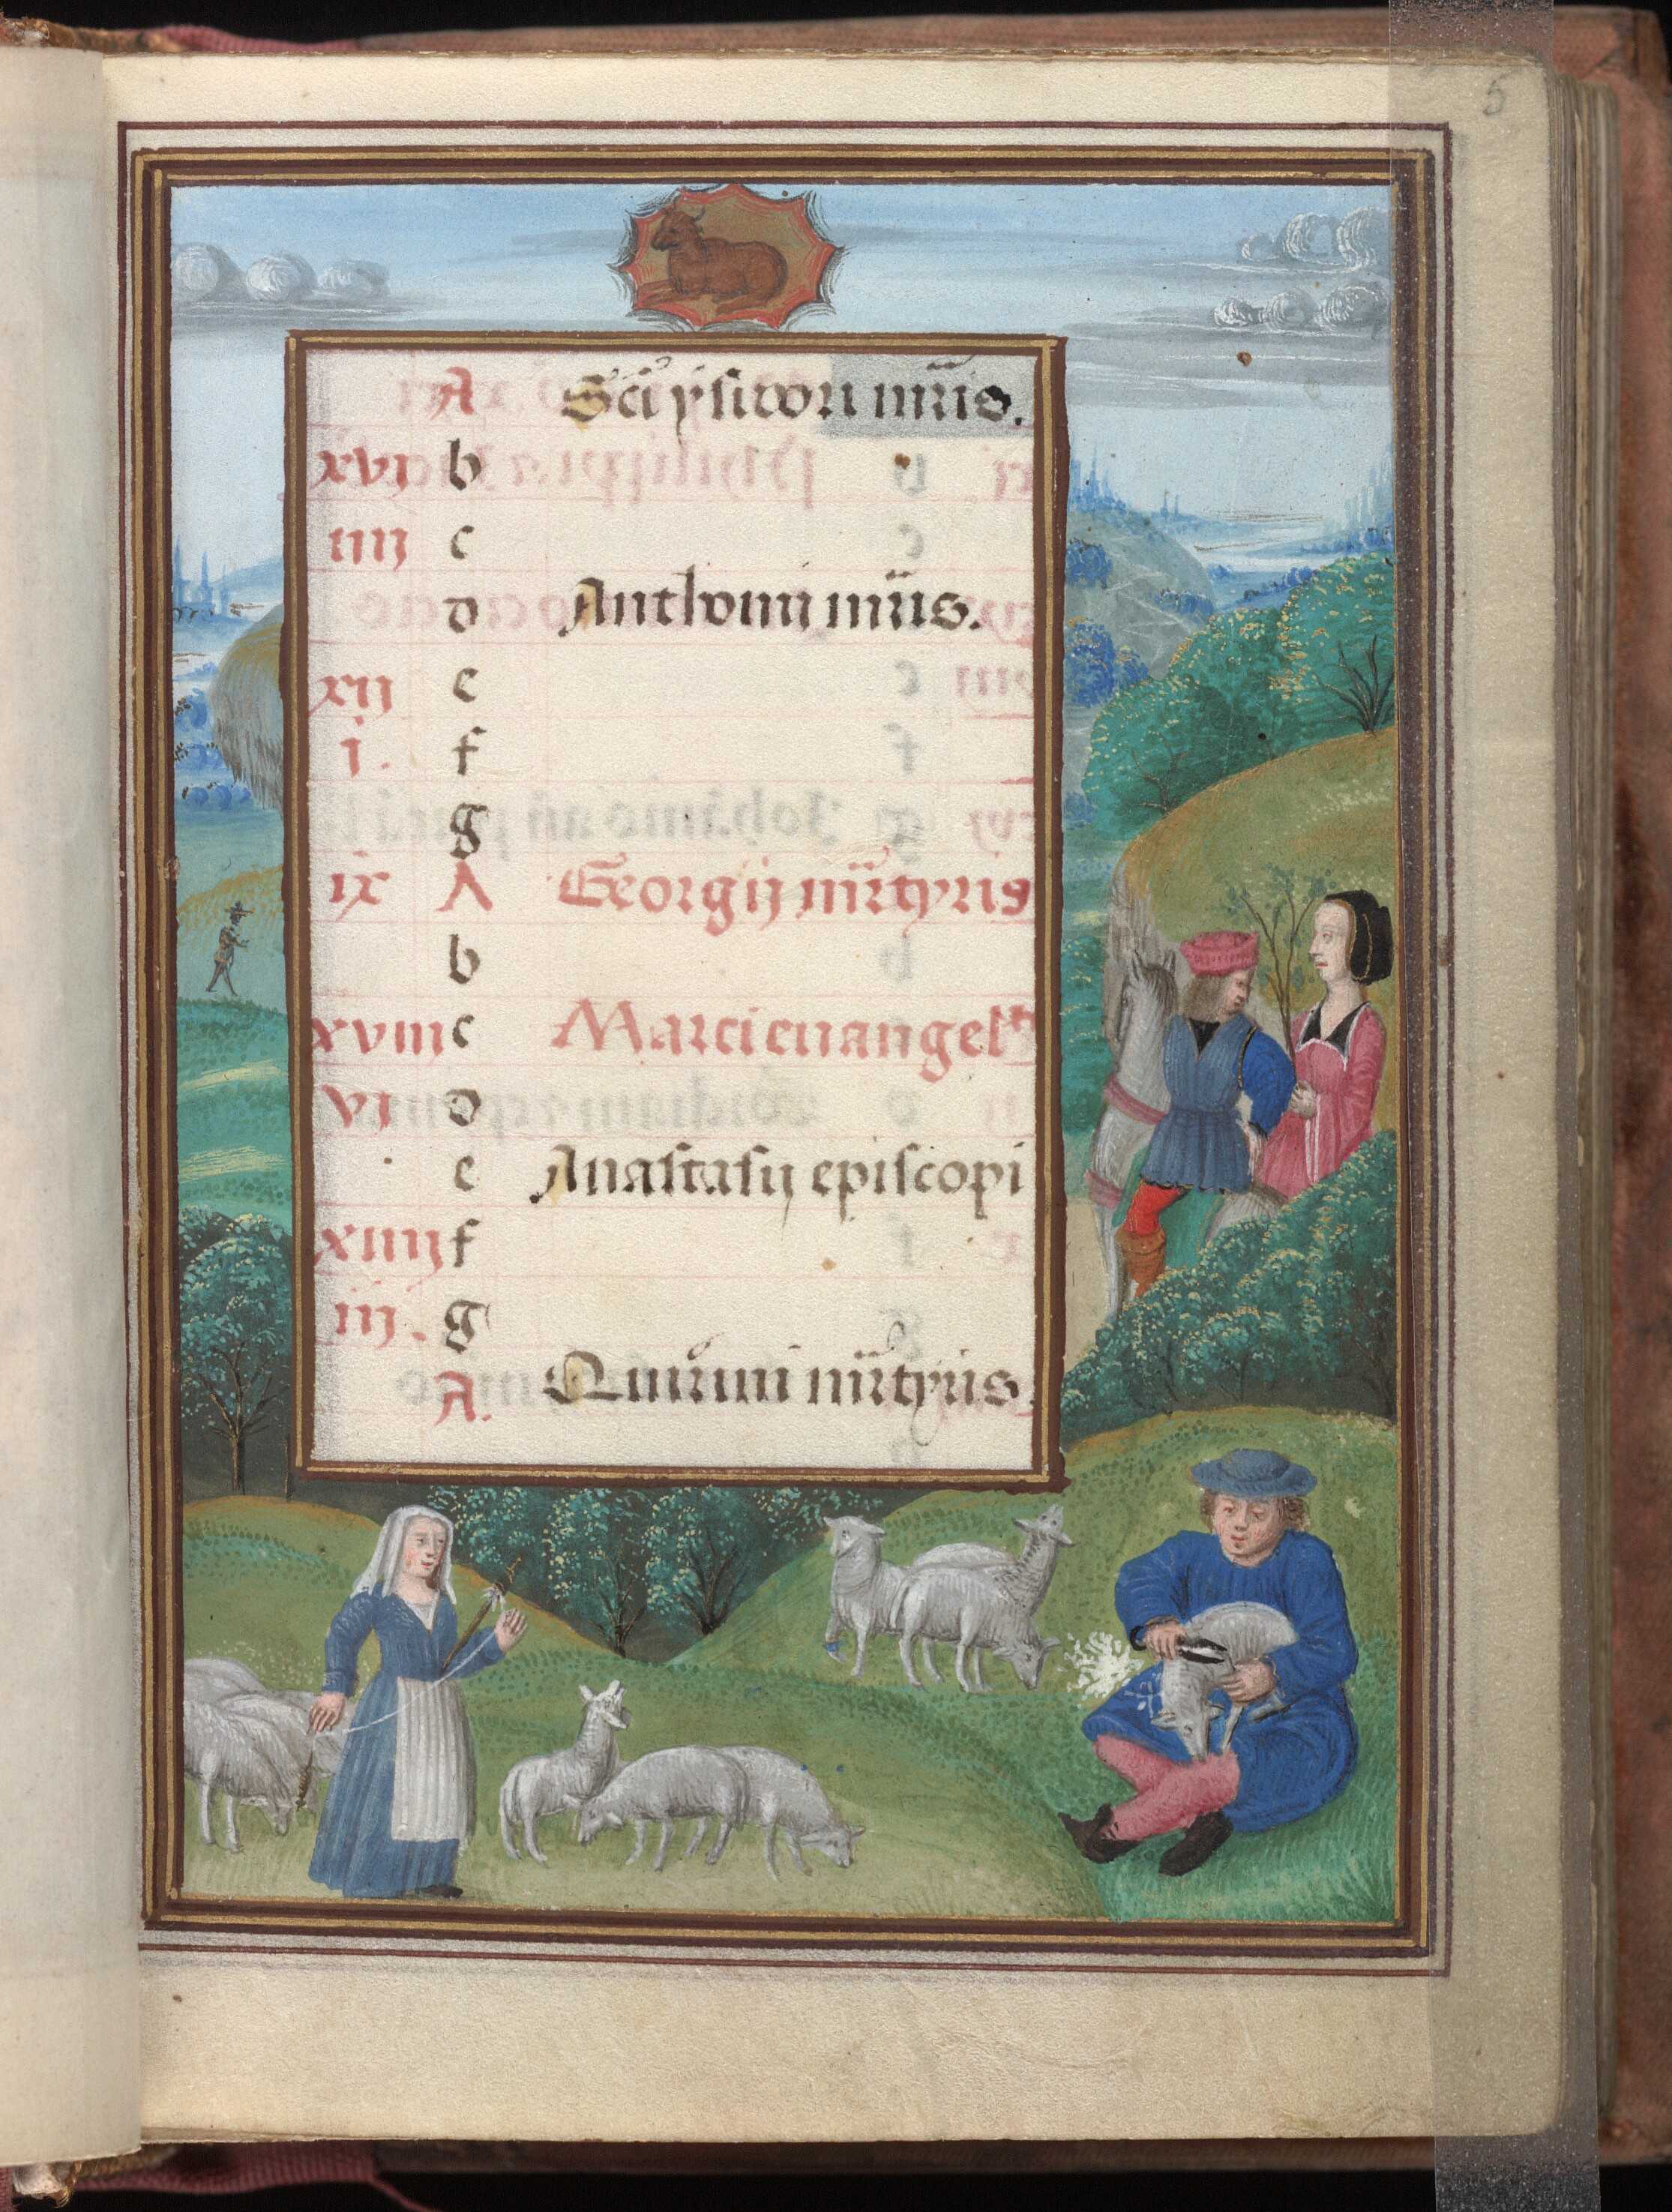 5
A Sci ysidori mr̄is.
xvj b
iiij c
d Anthonij mr̄is.
xij e
i. f
g
ix A Georgij mr̄tyris
b
xviij c Marci euangel
vj d
e Anastasij episcopi
xiiij f
iij. g
A. Quirini mr̄tyris.